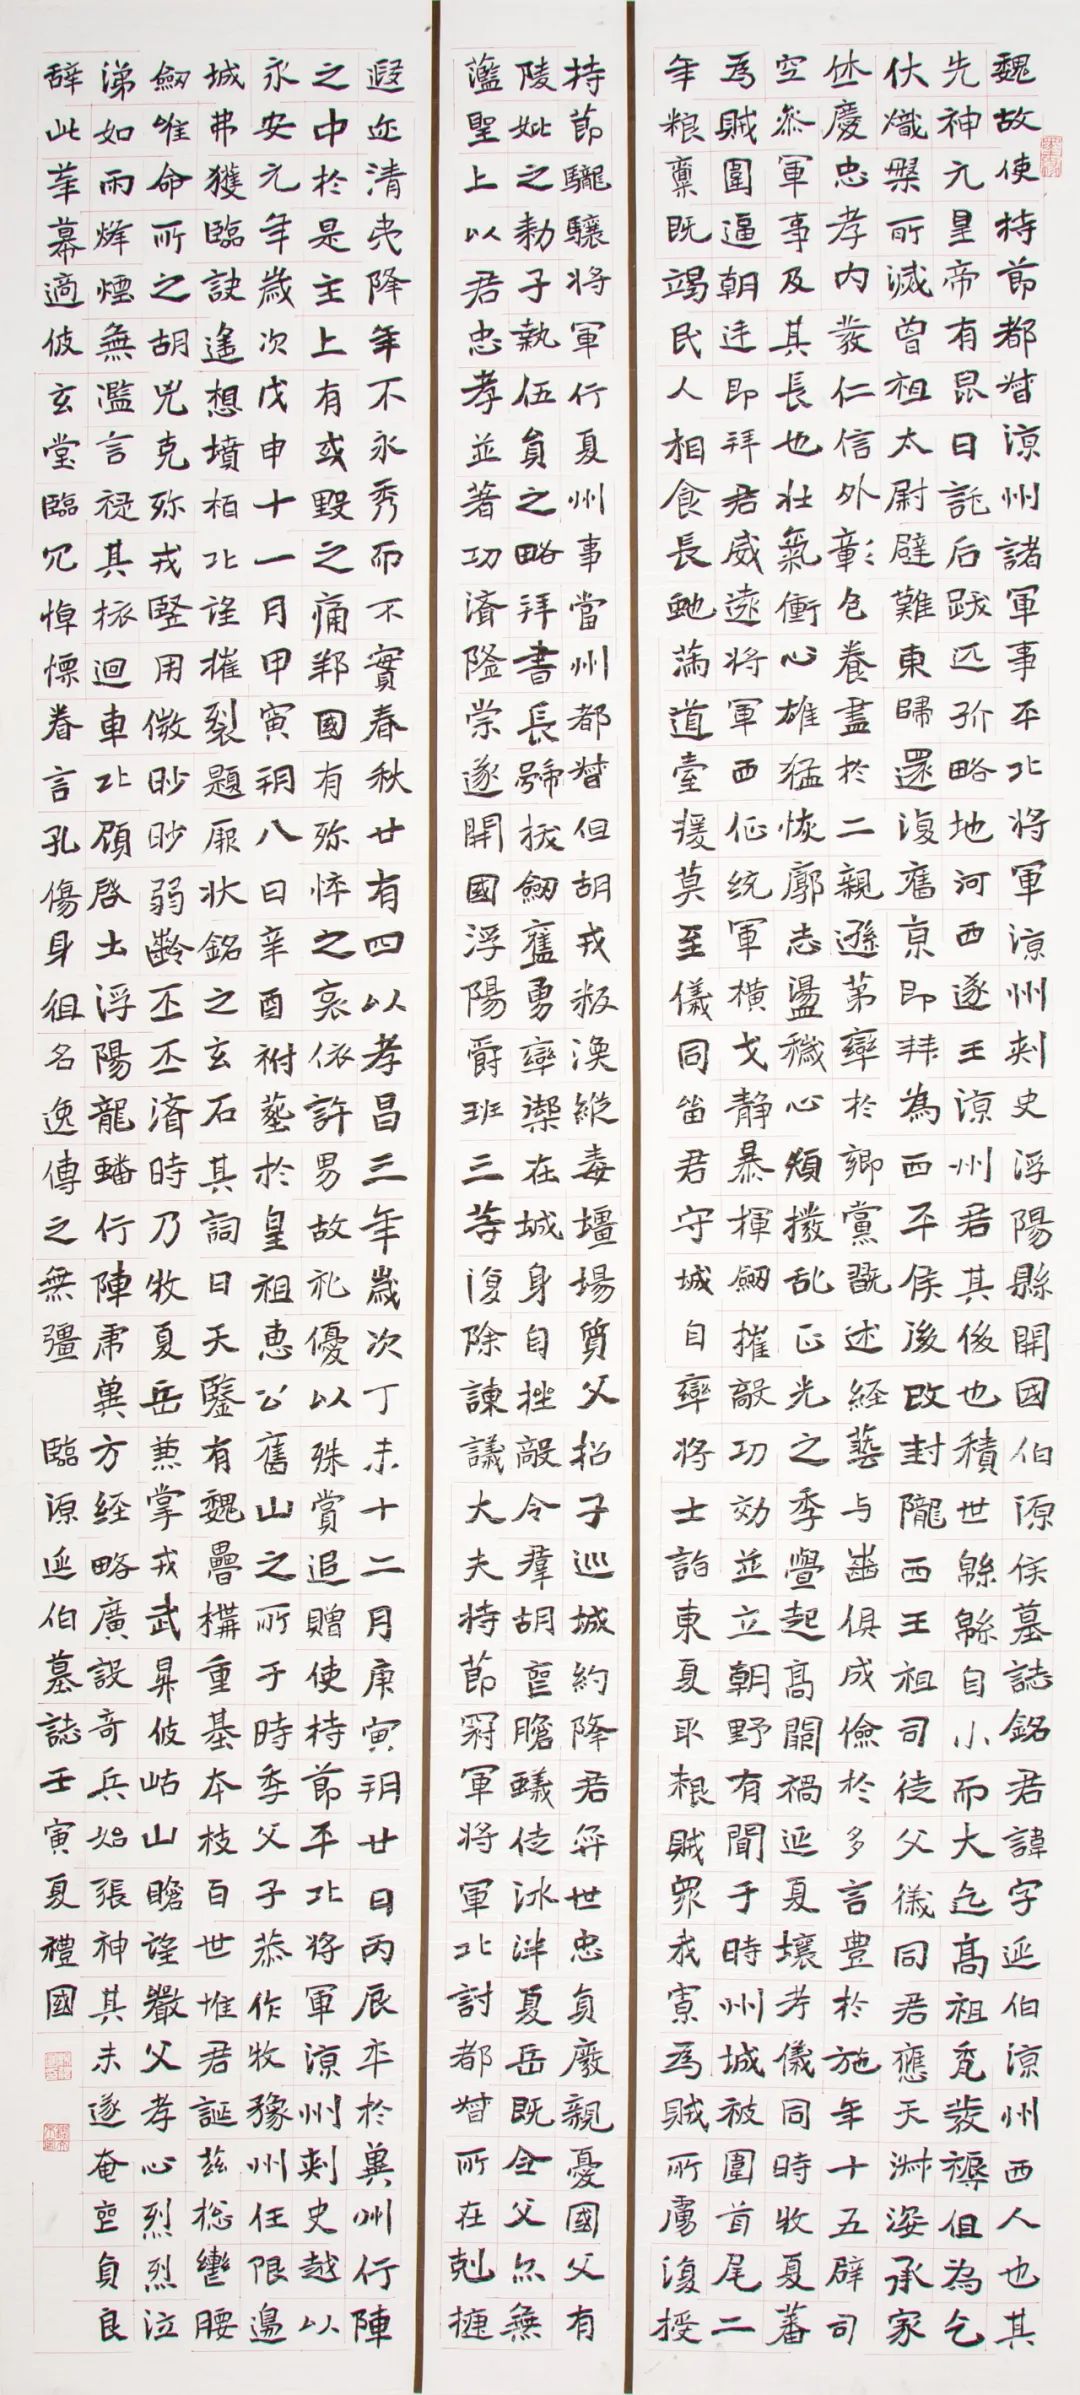 魏故使持節都督涼州諸軍事平北將軍涼州刺史浮陽縣開國伯源侯墓誌銘君諱字延伯涼州西人也其
先神元皇帝有昆曰託后跋匹孤略地河西遂王涼州君其後也積世緜緜自小而大迄高祖禿髮傉但為乞
伏熾槃所滅曾祖太尉避難東歸還復舊京即拜為西平侯後改封隴西王祖司徒父儀同君應天淋姿承家
世慶忠孝內發仁信外彰色養盡於二親遜第率於鄉黨既述經藝与齒俱成儉於多言豊於施年十五辟司
空參軍事及其長也壯氣衝心雄猛恢廓志盪穢心頻撥乱正光之季舋起高闕禍延夏壤考儀同時牧夏蕃
為賊圍逼朝廷即拜君威遠將軍西征統軍橫戈静暴揮劔摧敵功効並立朝野有聞于時州城被圍首尾二
年粮稟既竭民人相食長虵滿道臺援莫至儀同留君守城自率將士詣東夏取粮賊眾我寡為賊所虜復授
持節龍驤將軍行夏州事當州都督但胡戎叛渙縱毒壃場質父招子巡城約降君弈世忠貞廢親憂國父有
陵妣之勑子執伍員之略拜書長號拔劔舊勇率禦在城身自挫敵令群胡喪膽蟻徒冰泮夏岳既全父亦無
灆聖上以君忠孝並著功濟隘崇遂開國浮陽爵班三等復除諫議大夫持節冠軍將軍北討都督所在剋揵
遐迩清夷降年不永秀而不實春秋廿有四以孝昌三年歲次丁未十二月庚寅朔廿日丙辰卒於冀州行陣
之中於是主上有或毀之痛鄴國有殄悴之哀依許男故礼優以殊賞追贈使持節平北將軍涼州刺史越以
永安元年歲次戊申十一月甲寅朔八日辛酉祔葬於皇祖惠公舊山之所于時季父子恭作牧豫州任限邊
城弗獲臨訣遙想墳柏北望摧裂題厥狀銘之玄石其詞曰天鑒有魏疊構重基本枝百世惟君誕茲摠轡腰
劔唯命所之胡兇克殄戎竪用儌眇眇弱齡丕丕濟時乃牧夏岳兼掌戎武昇彼岵山瞻望嚴父孝心烈烈泣
涕如雨烽煙無濫言禔其祓迴車北顧啓土浮陽龍蟠行陣虎冀方経略廣設奇兵始張神其未遂奄喪貞良
辭此華幕適彼玄堂臨穴悼慄眷言孔傷身徂名逸傳之無彊 臨源延伯墓誌壬寅夏禮國